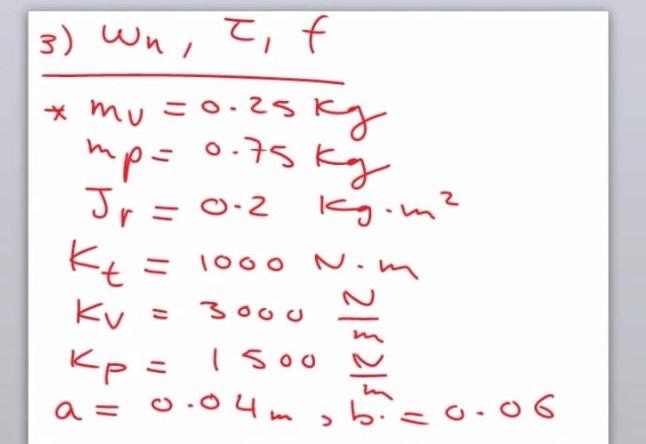 3) ωn, τ, f
* mv = 0.25 Kg
mp = 0.75 Kg
Jr = 0.2 Kg.m²
Kt = 1000 N.m
Kv = 3000 N/m
Kp = 1500 N/m
a = 0.04m, b. = 0.06